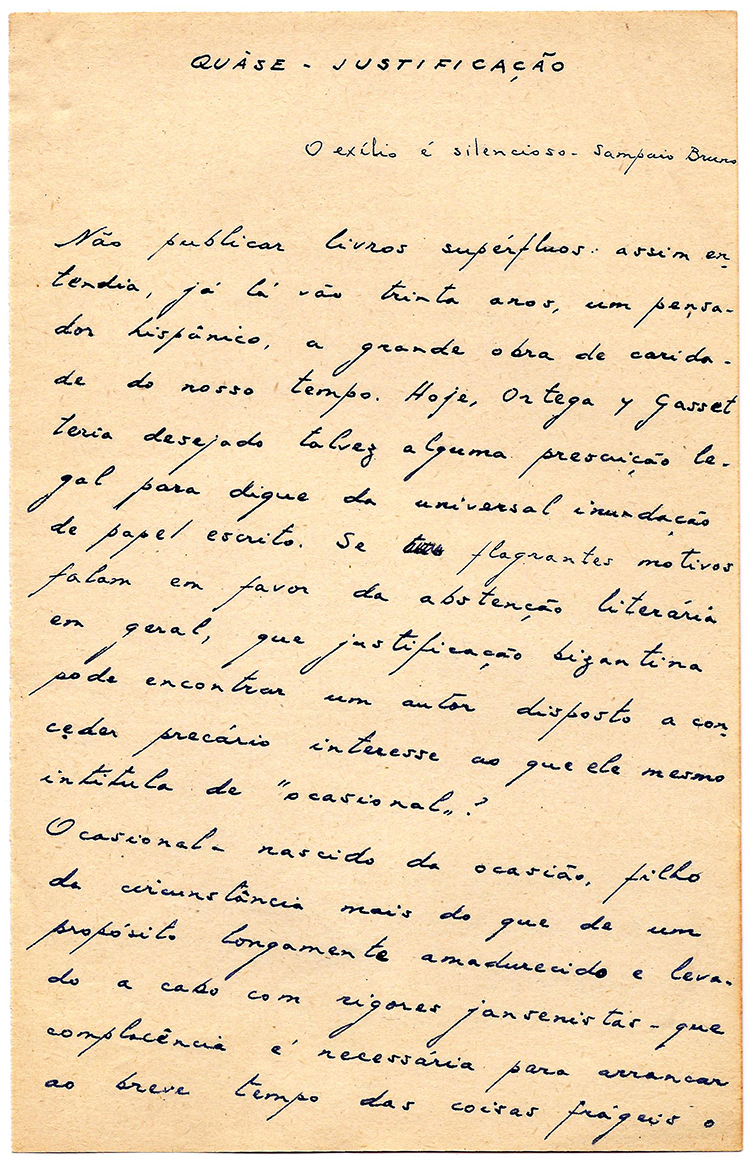 QUÁSE - JUSTIFICAÇÃO
O exílio é silencioso - Sampaio Bruno
Não publicar livros supérfluos: assim en-
tendia, já lá vão trinta anos, um pensa-
dor hispânico, a grande obra de carida-
de do nosso tempo. Hoje, Ortega y Gasset
teria desejado talvez alguma prescrição le-
gal para dique da universal inundação
de papel escrito. Se flagrantes motivos
falam em favor da abstenção literária
em geral, que justificação bizantina
pode encontrar um autor disposto a con-
ceder precário interesse ao que ele mesmo
intitula de "ocasional"?
Ocasional - nascido da ocasião, filho
da circunstância mais do que de um
propósito longamente amadurecido e leva-
do a cabo com rigores jansenistas - que
complacência é necessária para arrancar
ao breve tempo das coisas frágeis o